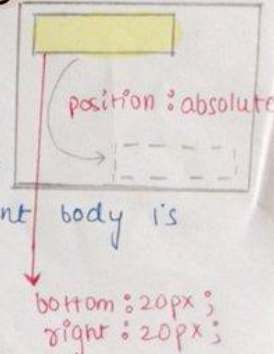 position : absolute
body is
bottom : 20px ;
right : 20px ;